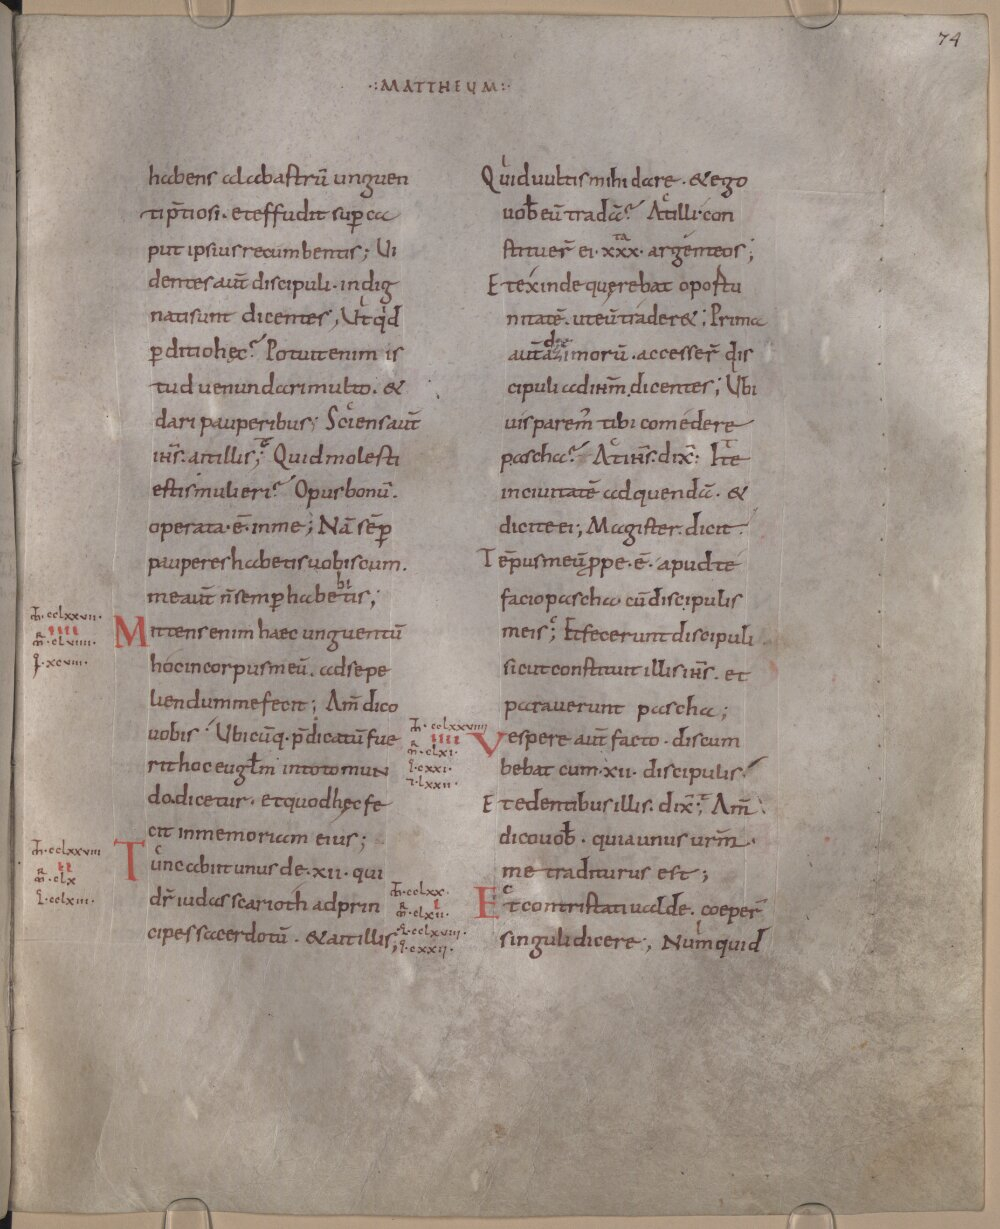 74
·:MATTHEUM:·
habens alabastrū unguen
ti p̄tiosi. et effudit sup̱ ca
put ipsius recumbentis; Vi
dentes aut̄ discipuli. indig
nati sunt dicentes, Ut qͥd
ꝑditio hęc? Potuit enim is
tud uenundari multo. &
dari pauperibus; Sciens aut̄
ih̄s. ait illis; Quid molesti
estis mulieri? Opus bonū.
operata·ē·in me; Nā sēp̱
pauperes habetis uobiscum.
me aut̄ n̄ semp̱ habetis;
Mittens enim haec unguentū
hoc in corpus meū. ad sepe
liendum me fecit; Am̄ dico
uobis Ubicūq. p̄dicatū fue
rit hoc eug̅lm in toto mun
do. dicetur. et quod hęc fe
cit in memoriam eius;
Tunc abiit unus de·xii·qui
dr̄ iudas scarioth ad prin
cipes sacerdotū. & ait illis;
Quid uultis mihi dare. & ego
uob̄ eū tradā? At illi con
stituer̄ ei·xxx·argenteos;
Et exinde querebat oportu
nitatē. ut eū trader&; Prima
aut̄ die azimorū. accesser̄ dis
cipuli ad ih̄m dicentes; Ubi
uis parem̄ tibi comedere
pascha? At ih̄s. dix̄; Ite
in ciuitatē ad quendā. &
dicite ei; Magister dicit.
Tēpus meū ꝓpe·ē·apud te
facio pascha cū discipulis
meis; Et fecerunt discipuli
sicut constituit illis ih̄s. et
parauerunt pascha;
Vespere aut̄ facto. discum
bebat cum·xii·discipulis.
Et edentibus illis. dix̄; Am̄
dico uob̄. quia unus urm̄.
me traditurus est;
Et contristati ualde. coeper̄
singuli dicere, Numquid
·cclxxvii·
iiii
m̄·clviiii·
·xcviii·
·cclxxviii
ii
m̄·clx
·cclxiii·
·cclxxviiii
iiii
m̄·clxi·
·cxxi·
·lxxii·
·cclxx·
i
m̄·clxii·
·cclxviii·
·cxxii·